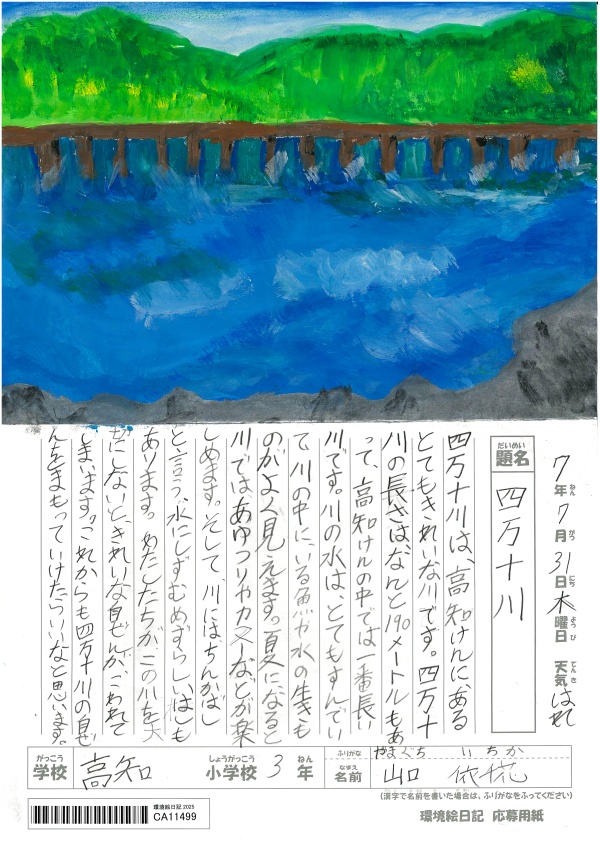 7年ねん7月がつ31日にち木曜日ようび 天気てんき はれ
だいめい
題名 四万十川
四万十川は、高知けんに、ある
とてもきれいな川です。四万十
川の長さは、なんと190メートルもあ
って、高知けんの中では一番長い
川です。川の水は、とてもすんでい
て、川の中に、いる魚や水の生きも
のがよく見えます。夏になると
川ではあゆつりやカヌーなどが楽
しめます。そして、川にはちんかはし
と言う、水にしずむめずらしいはしも
あります。わたしたちが、この川を大
じにしないと、きれいな自ぜんが、こわれて
しまいます。これからも四万十川の自ぜ
んをまもっていけたらいいなと思います。
がっこう
学校 高知
しょうがっこう ねん
小学校 3 年
ふりがな やまぐち いちか
なまえ
名前 山口 依花
(漢字で名前を書いた場合は、ふりがなをふってください)
環境絵日記 2025
CA11499
環境絵日記 応募用紙